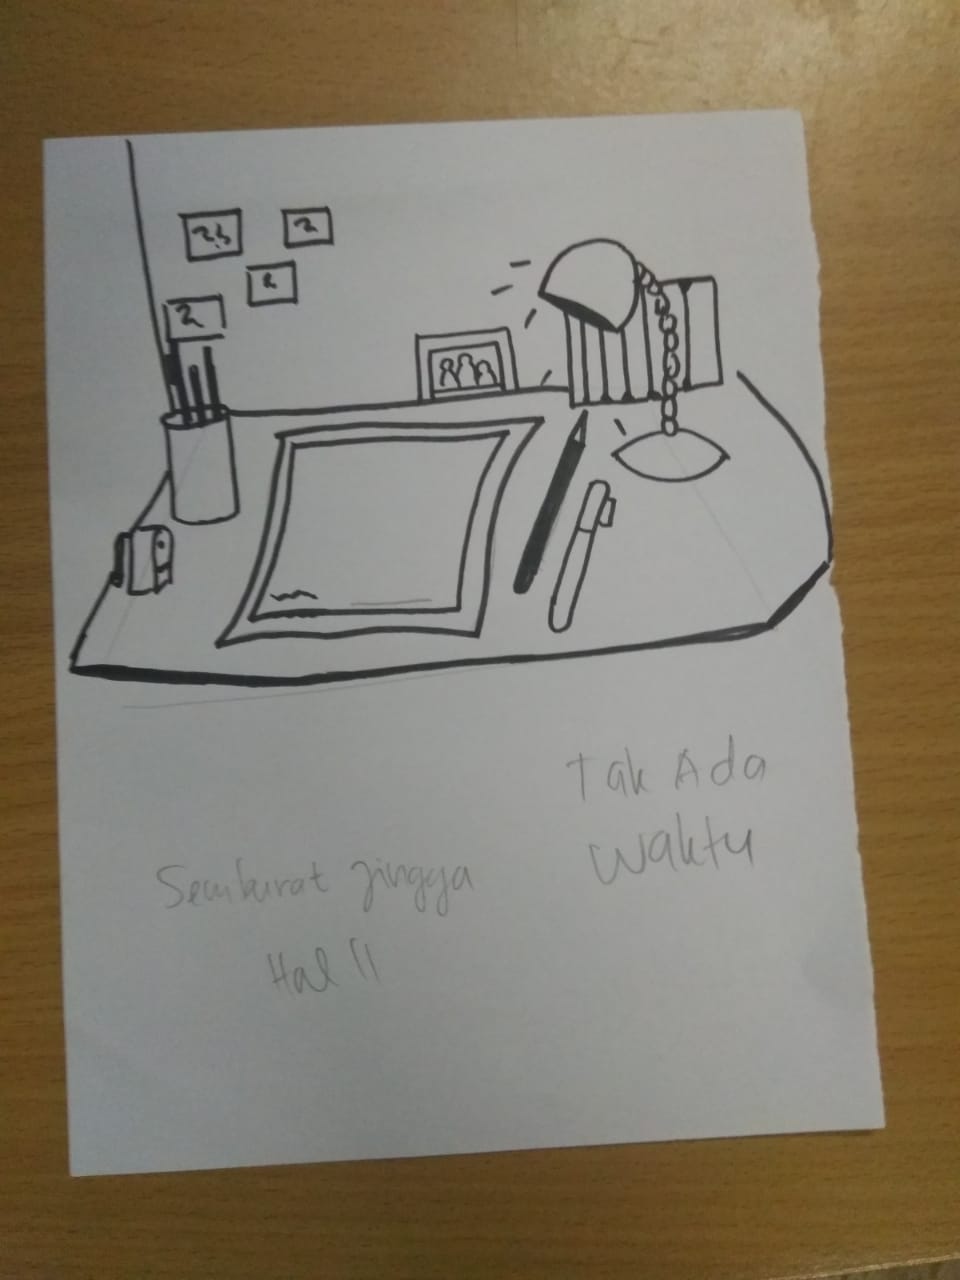 Tak Ada
Waktu
Semburat Jingga
Hal 11